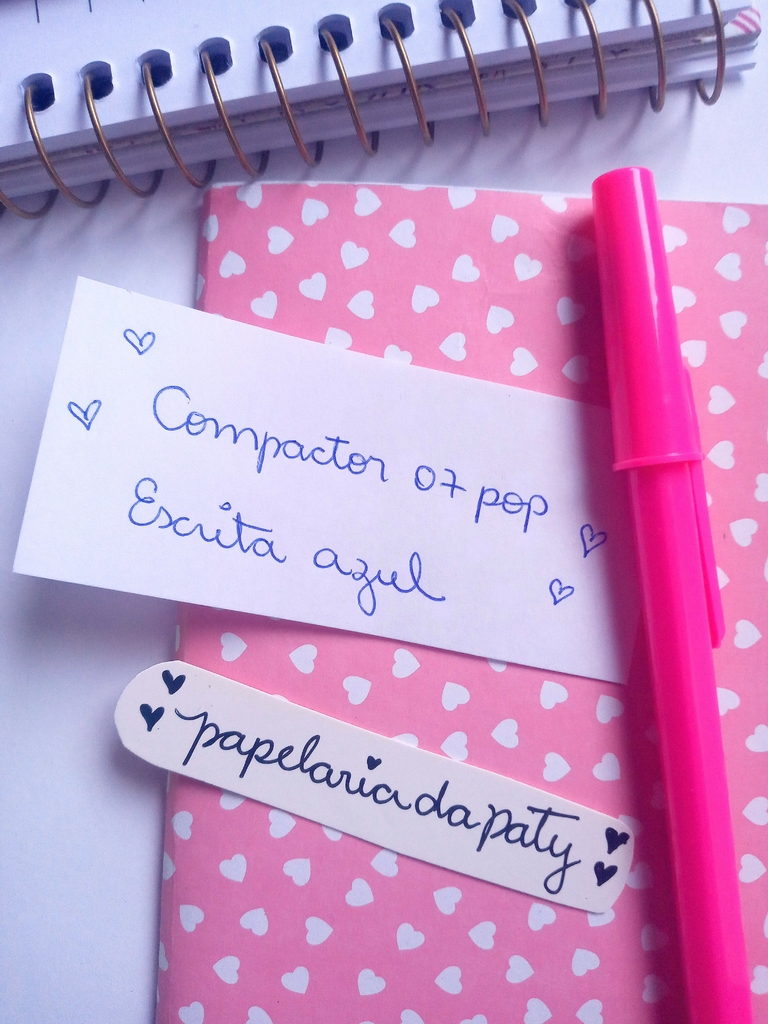 Compactor 07 pop
Escrita azul
papelaria da paty